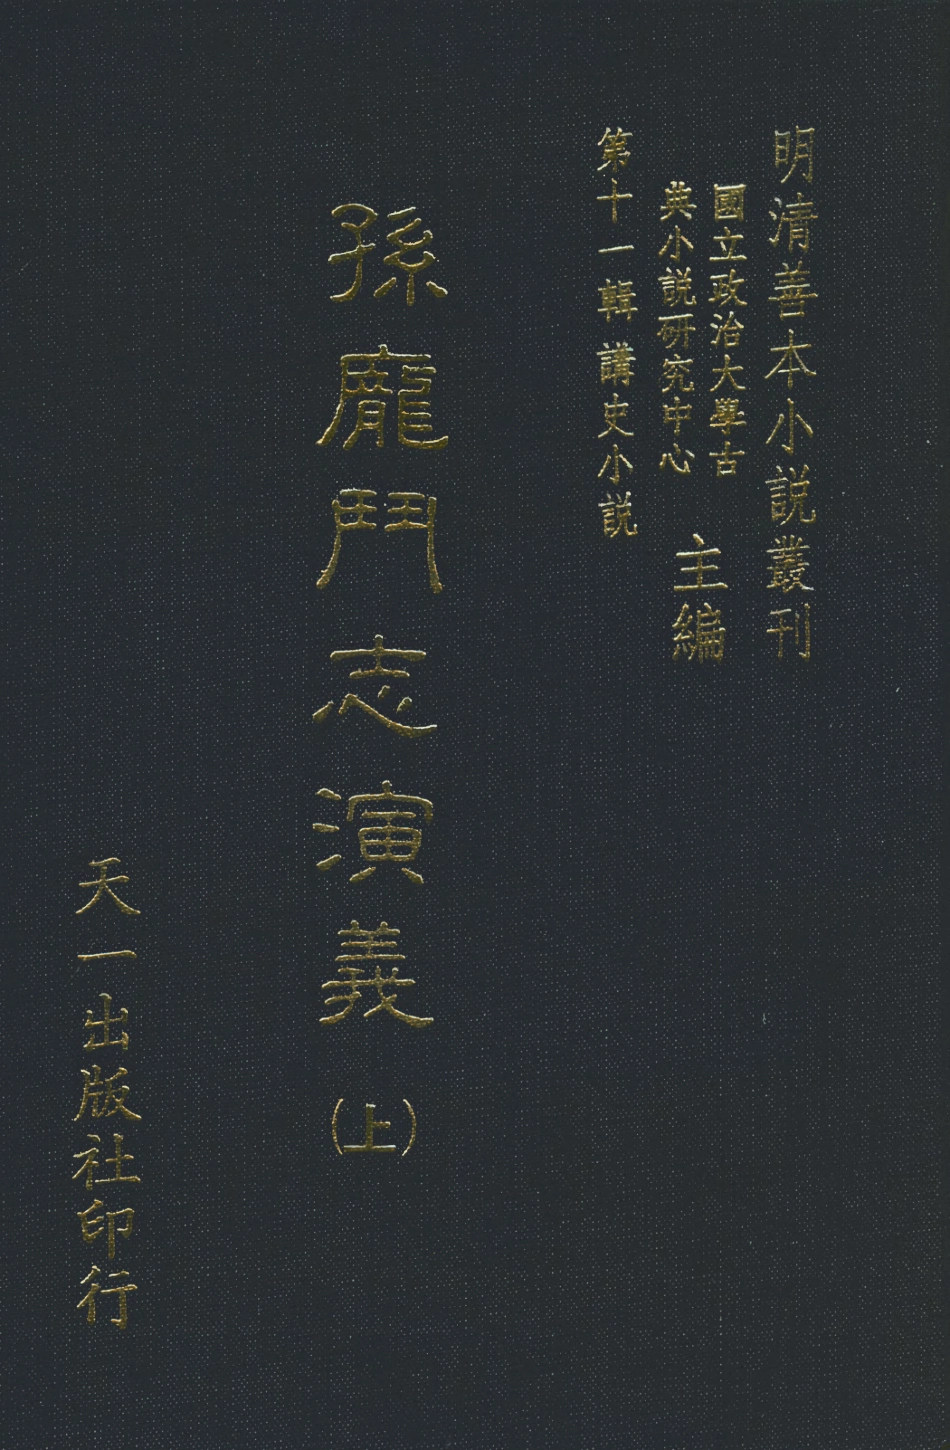 明清善本小説叢刊
國立政治大學古
典小説研究中心
主編
第十一輯 講史小説
孫龐鬥志演義(上)
天一出版社印行